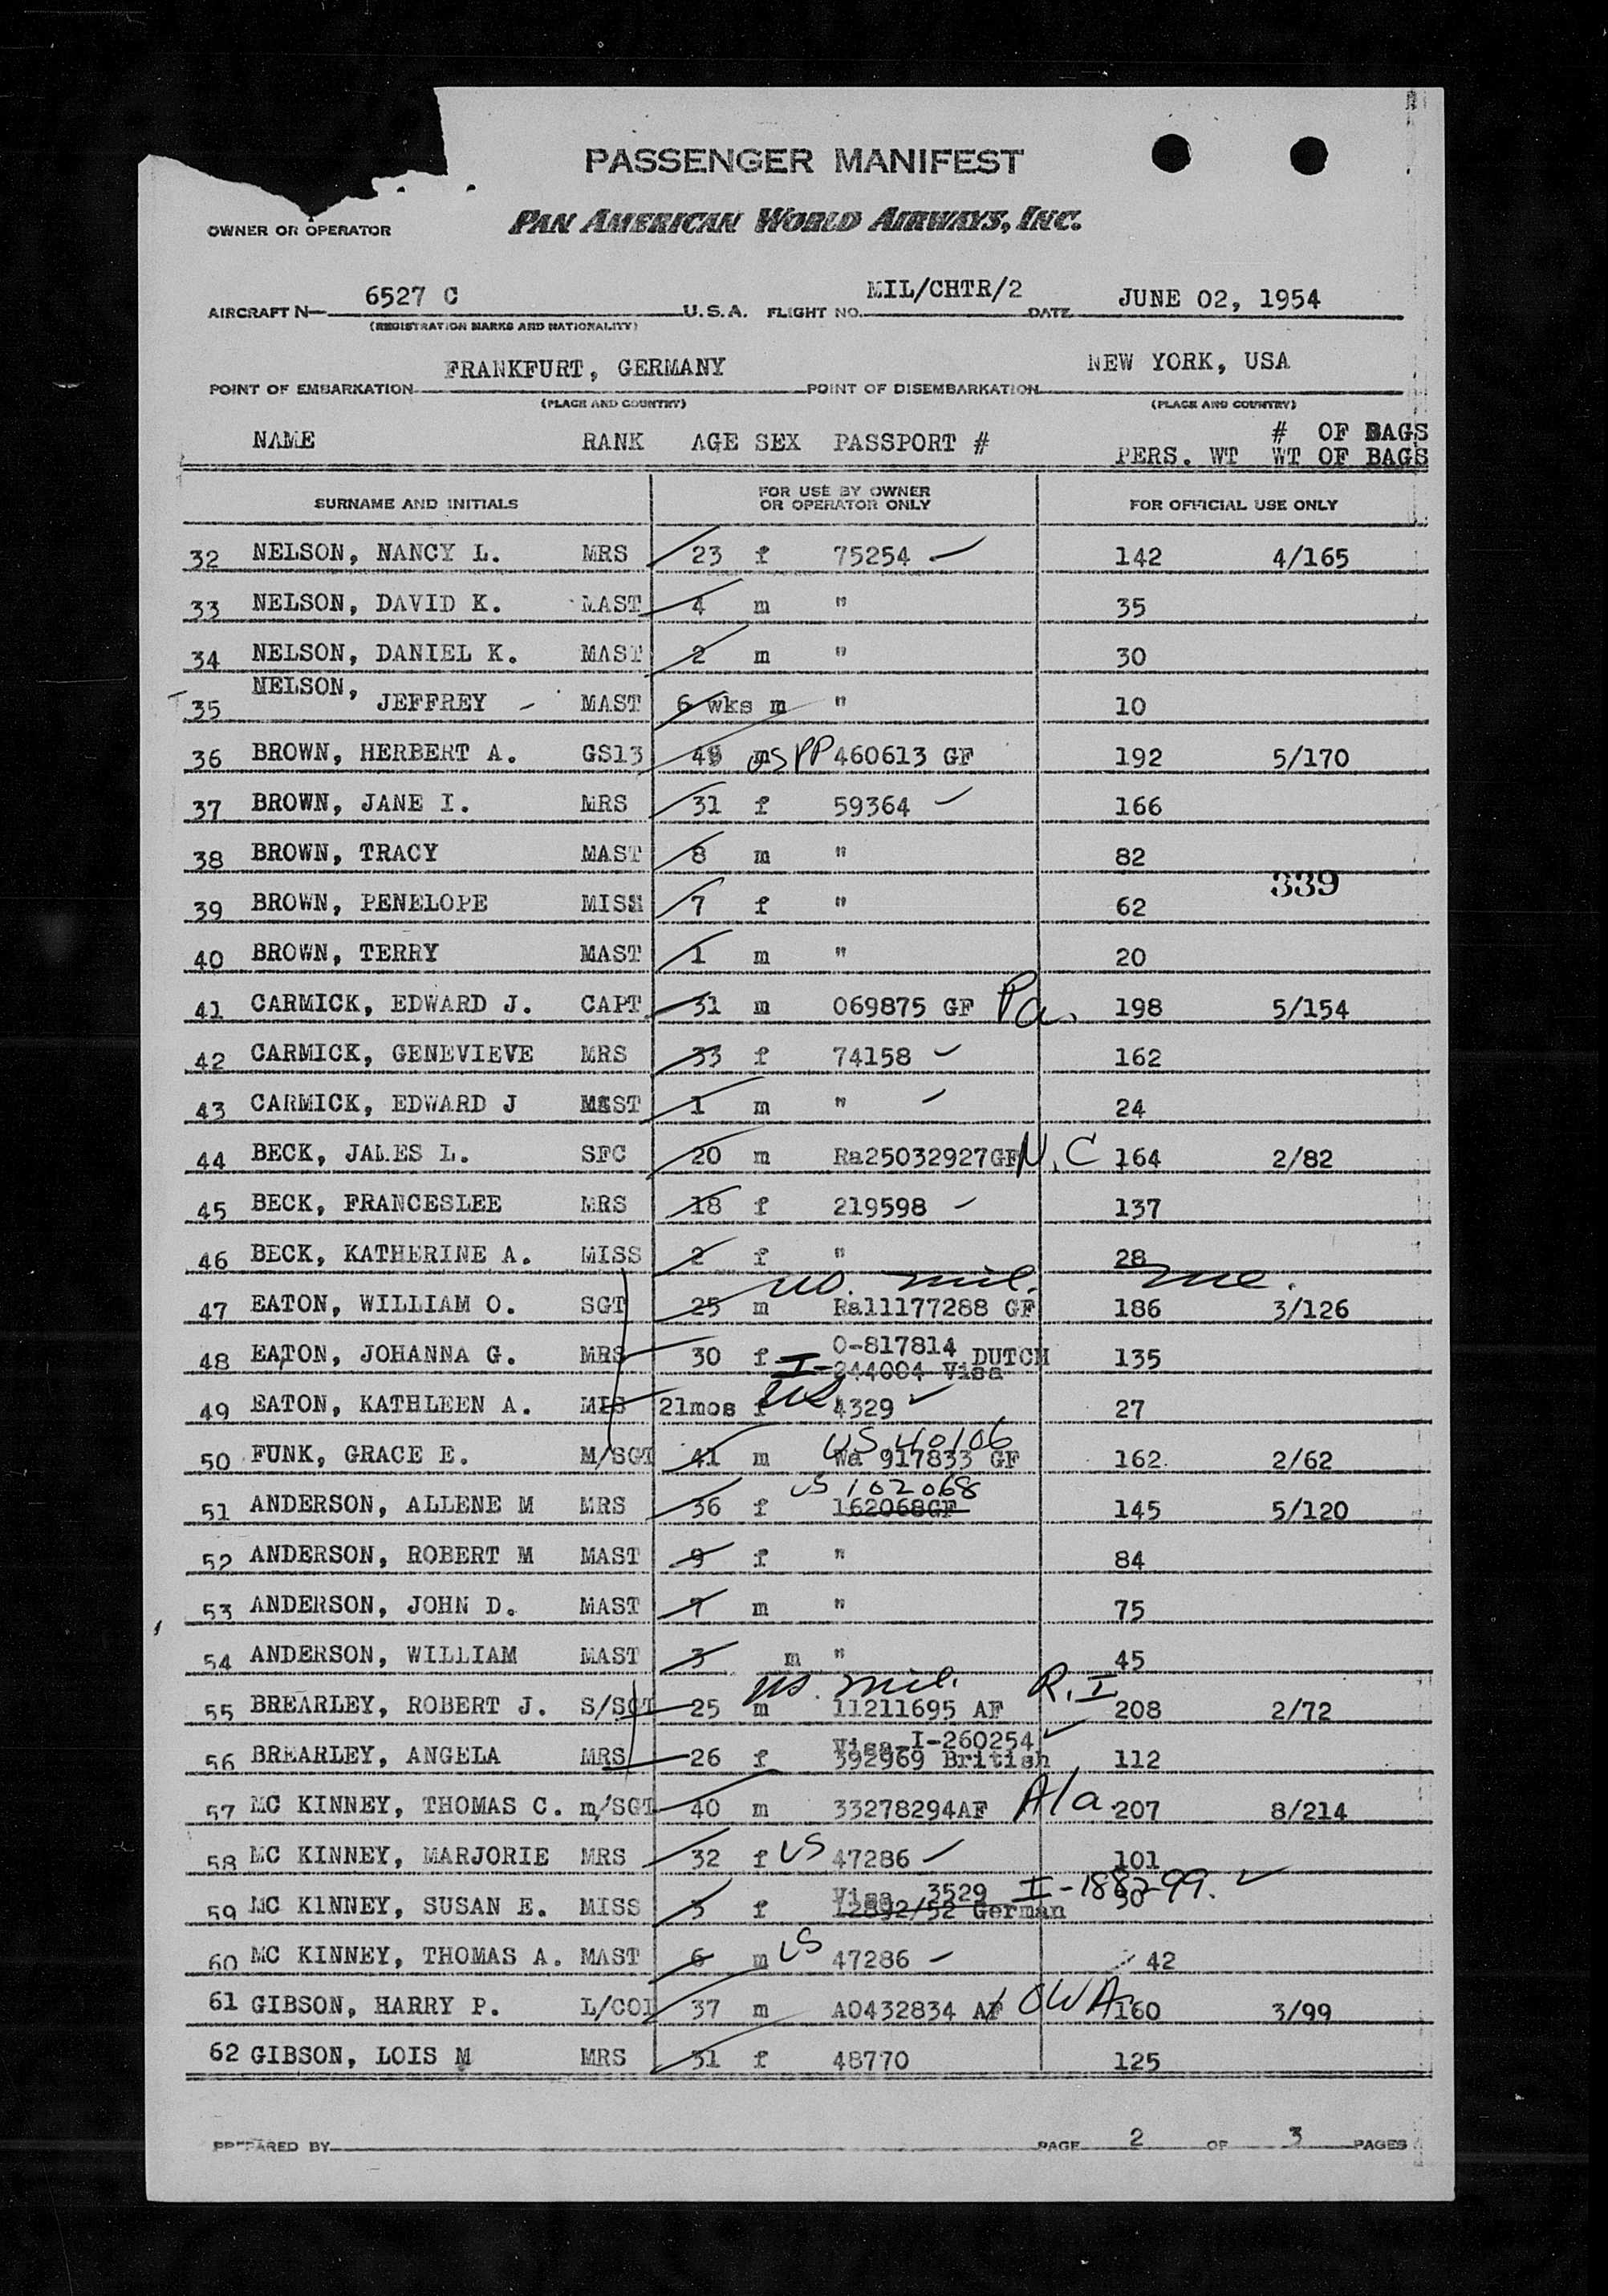 PASSENGER MANIFEST
OWNER OR OPERATOR PAN AMERICAN WORLD AIRWAYS, INC.
AIRCRAFT N— 6527 C U.S.A. FLIGHT NO. MIL/CHTR/2 DATE JUNE 02, 1954
(REGISTRATION MARKS AND NATIONALITY)
POINT OF EMBARKATION FRANKFURT, GERMANY POINT OF DISEMBARKATION NEW YORK, USA
(PLACE AND COUNTRY) (PLACE AND COUNTRY)
# OF BAGS
NAME RANK AGE SEX PASSPORT # PERS. WT WT OF BAGS
SURNAME AND INITIALS FOR USE BY OWNER OR OPERATOR ONLY FOR OFFICIAL USE ONLY
32 NELSON, NANCY L. MRS 23 f 75254 142 4/165
33 NELSON, DAVID K. MAST 4 m " 35
34 NELSON, DANIEL K. MAST 2 m " 30
35 NELSON, JEFFREY - MAST 6 wks m " 10
36 BROWN, HERBERT A. GS13 49 m US PP 460613 GF 192 5/170
37 BROWN, JANE I. MRS 31 f 59364 166
38 BROWN, TRACY MAST 8 m " 82
339
39 BROWN, PENELOPE MISS 7 f " 62
40 BROWN, TERRY MAST 1 m " 20
41 CARMICK, EDWARD J. CAPT 31 m 069875 GF Pa. 198 5/154
42 CARMICK, GENEVIEVE MRS 33 f 74158 162
43 CARMICK, EDWARD J MAST 1 m " 24
44 BECK, JAMES L. SFC 20 m Ra25032927GF N.C 164 2/82
45 BECK, FRANCESLEE MRS 18 f 219598 137
46 BECK, KATHERINE A. MISS 2 f " 28
US. mil. me.
47 EATON, WILLIAM O. SGT 25 m Ra11177288 GF 186 3/126
48 EATON, JOHANNA G. MRS 30 f O-817814 DUTCH 135
I-244004 Visa
49 EATON, KATHLEEN A. MIS 21mos f US 4329 27
US 40106
50 FUNK, GRACE E. M/SGT 41 m Wa 917833 GF 162 2/62
US 102068
51 ANDERSON, ALLENE M MRS 36 f 162068GF 145 5/120
52 ANDERSON, ROBERT M MAST 9 f " 84
53 ANDERSON, JOHN D. MAST 7 m " 75
54 ANDERSON, WILLIAM MAST 3 m " 45
US. mil. R.I
55 BREARLEY, ROBERT J. S/SGT 25 m 11211695 AF 208 2/72
Visa I-260254
56 BREARLEY, ANGELA MRS 26 f 392969 British 112
57 MC KINNEY, THOMAS C. m/SGT 40 m 33278294AF Ala. 207 8/214
58 MC KINNEY, MARJORIE MRS 32 f US 47286 101
Visa 3529 I-188299.
59 MC KINNEY, SUSAN E. MISS 3 f 12892/52 German 30
60 MC KINNEY, THOMAS A. MAST 6 m US 47286 42
61 GIBSON, HARRY P. L/COL 37 m AO432834 AF IOWA 160 3/99
62 GIBSON, LOIS M MRS 31 f 48770 125
PREPARED BY PAGE 2 OF 3 PAGES